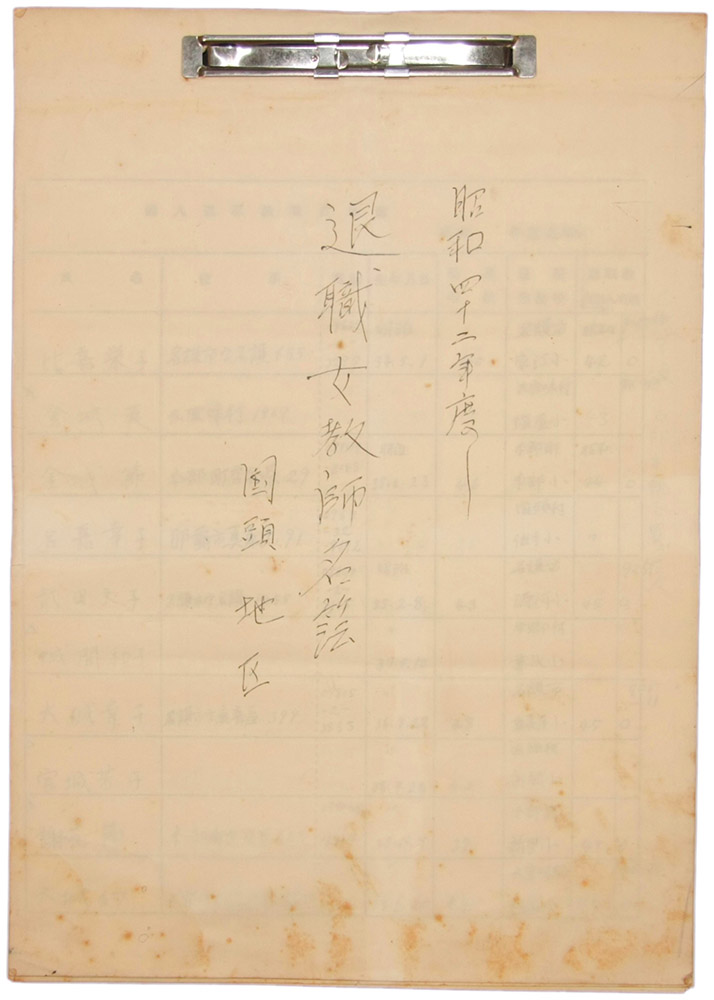 昭和四十二年度〜
退職女教師名簿
国頭地区